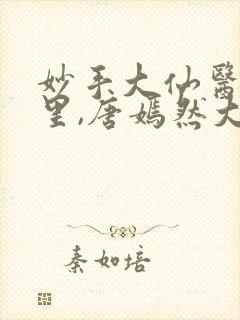 妙手大仙醫
里,唐嫣然大
秦如培